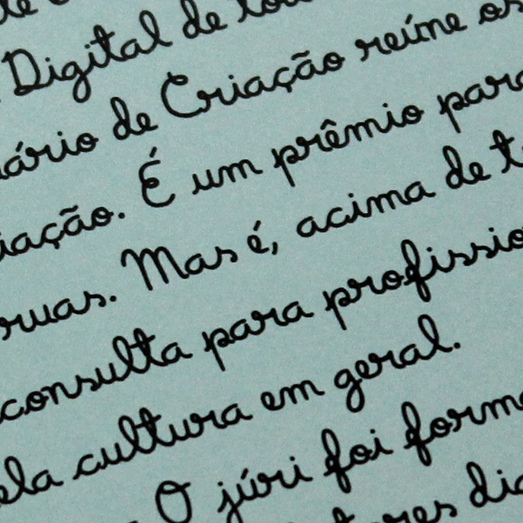 Digital de
ário de Criação reúne os
iação. É um prêmio para
ruas. Mas é, acima de t
consulta para profissio
ela cultura em geral.
O júri foi forma
tores dia